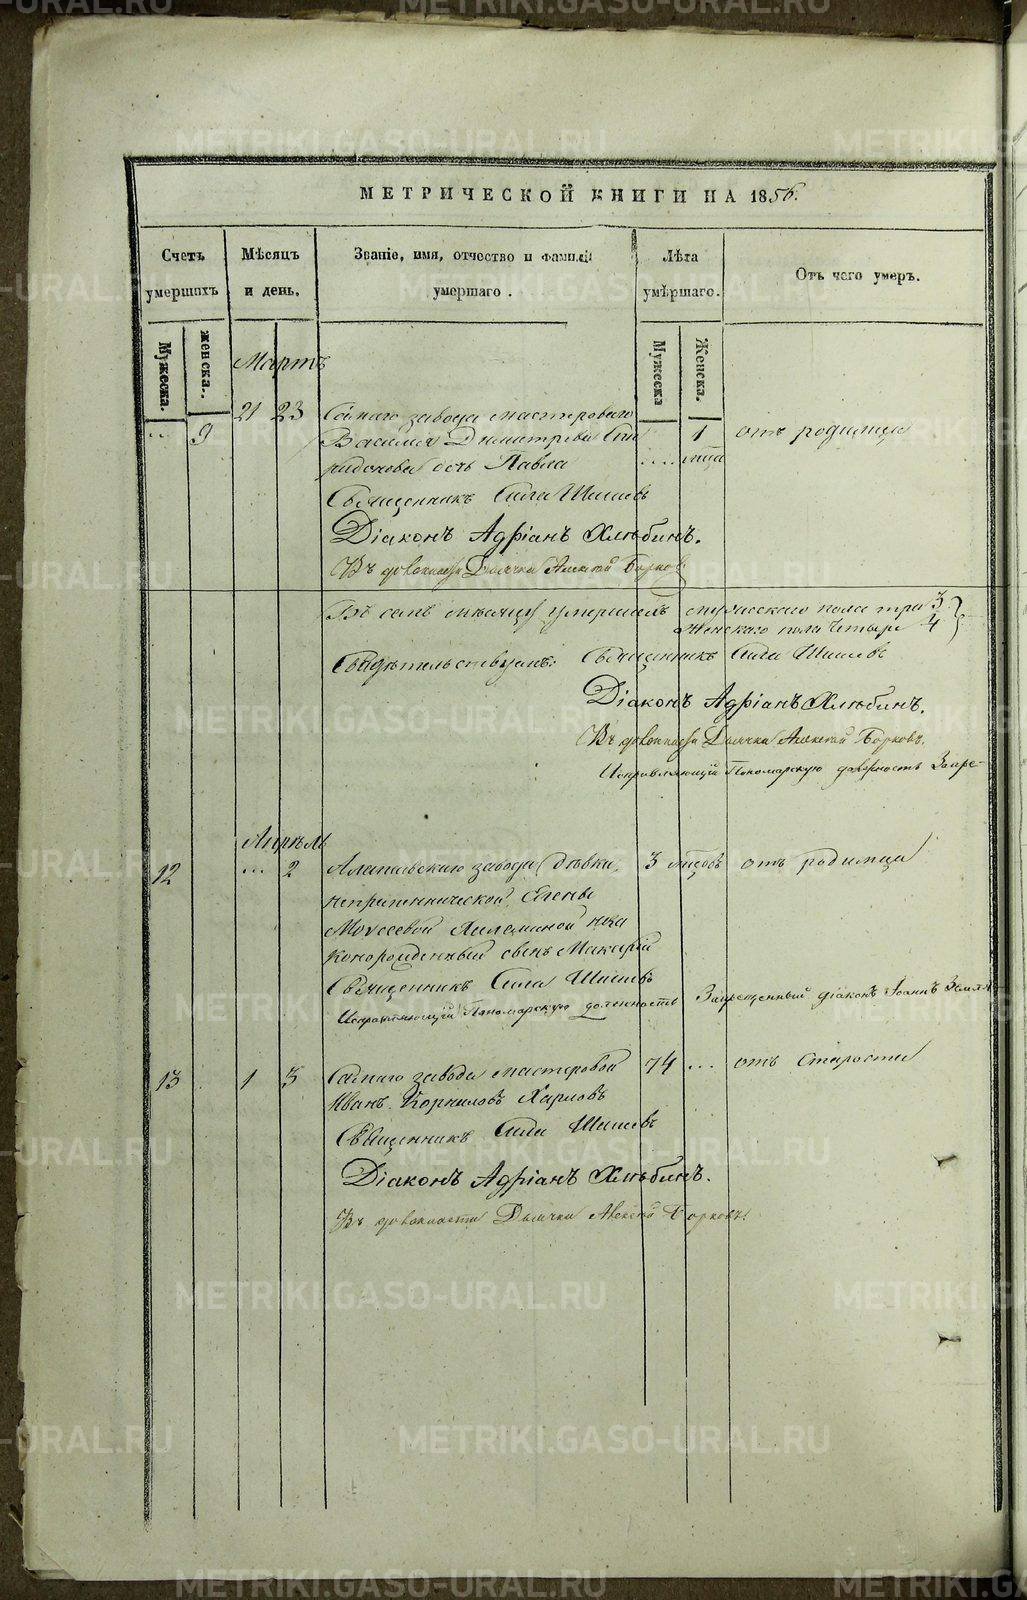 МЕТРИЧЕСКОЙ КНИГИ НА 1856.
Счетъ умершихъ
Мѣсяцъ и день.
Званіе, имя, отчество и фамилія умершаго.
Лѣта умѣршаго.
Отъ чего умеръ.
Мужеска.
женска.
Мужеска
Женска.
Мартъ
9 21 23 мастероваго 1 отъ родимца
Василья Димитріева
дочь Павла
Священникъ Сила Шишевъ
Діаконъ Адріанъ Хлѣбинъ.
Въ должности Дьячка Алексій Борковъ
Въ семъ мѣсяцѣ умершихъ мужескаго пола три 3
Женскаго пола четыре 4
Свидѣтельствуемъ: Священникъ Сила Шишевъ
Діаконъ Адріанъ Хлѣбинъ.
Въ должности Дьячка Алексій Борковъ.
Исправляющій Пономарскую должность Запре-
Апрѣль
12 ... 2 Алапаевскаго завода дѣвки 3 отъ родимца
Елены
неза
конорожденный сынъ Макарій
Священникъ Сила Шишевъ
Исправляющій Пономарскую должность Запрещенный діаконъ Іоаннъ
13 1 3 завода мастеровой 74 ... отъ старости
Иванъ Корниловъ Харловъ
Священникъ Сила Шишевъ
Діаконъ Адріанъ Хлѣбинъ.
Въ должности Дьячка Алексій Борковъ.
METRIKI.GASO-URAL.RU